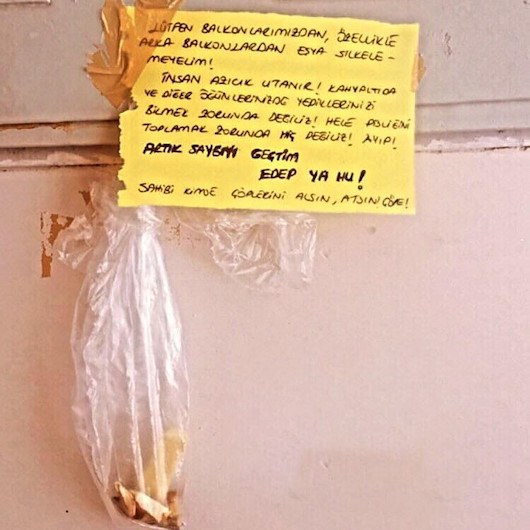 LÜTFEN BALKONLARIMIZDAN, ÖZELLİKLE
ARKA BALKONLARDAN EŞYA SİLKELE-
MEYELİM!
İNSAN AZICIK UTANIR! KAHVALTIDA
VE DİĞER ÖĞÜNLERİNİZDE YEDİKLERİNİZİ
BİLMEK ZORUNDA DEĞİLİZ! HELE PİSLİĞİNİ
TOPLAMAK ZORUNDA HİÇ DEĞİLİZ! AYIP!
ARTIK SAYGIYI GEÇTİM
EDEP YA HU!
SAHİBİ KİMSE ÇÖPLERİNİ ALSIN, ATSIN ÇÖPE!